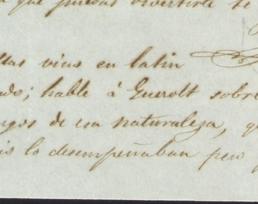 que puedas divertirte
llas vius en latin
ado; hable á Guerolt sobre
rgos de esa naturaleza, q
is lo desempeñaban pero